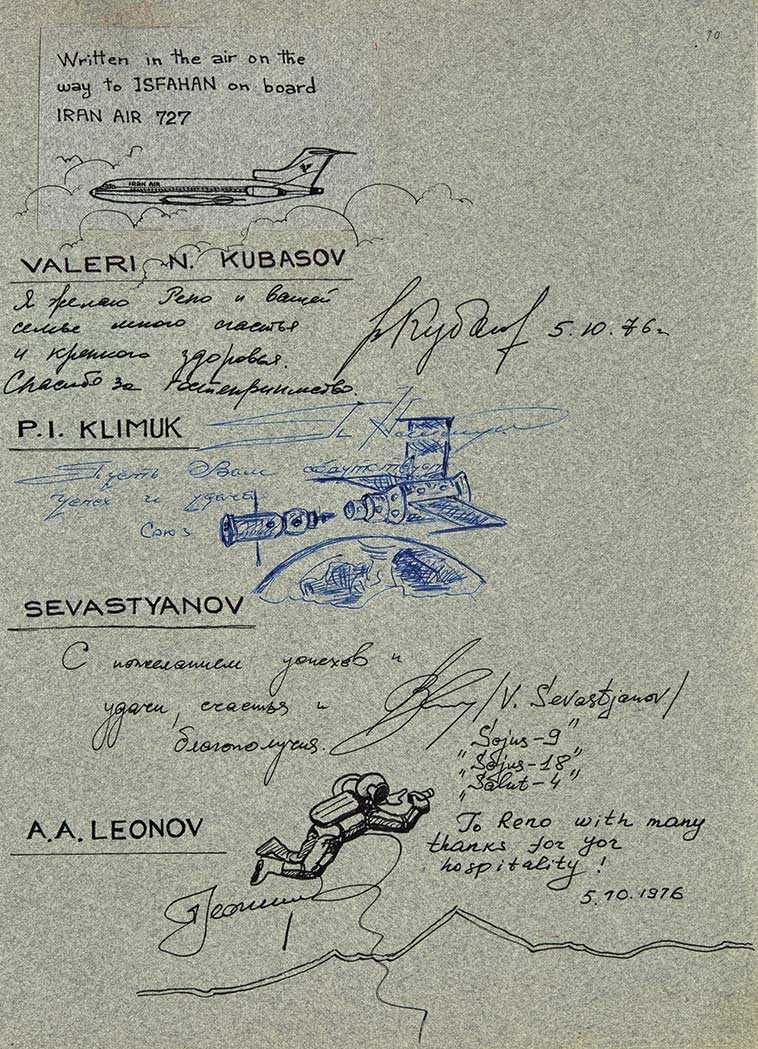 10
Written in the air on the
way to ISFAHAN on board
IRAN AIR 727
IRAN AIR
VALERI N. KUBASOV
Я желаю Рено и вашей
семье много счастья
и крепкого здоровья.
Спасибо за гостеприимство.
Кубасов 5.10.76г.
P.I. KLIMUK
Пусть Вам сопутствуют
успех и удача
Союз
SEVASTYANOV
С пожеланием успехов и
удачи, счастья и
благополучия.
/V. Sevastjanov/
"Sojus-9"
"Sojus-18"
"Salut-4"
A.A. LEONOV
To Reno with many
thanks for yor
hospitality!
5.10.1976
Леонов